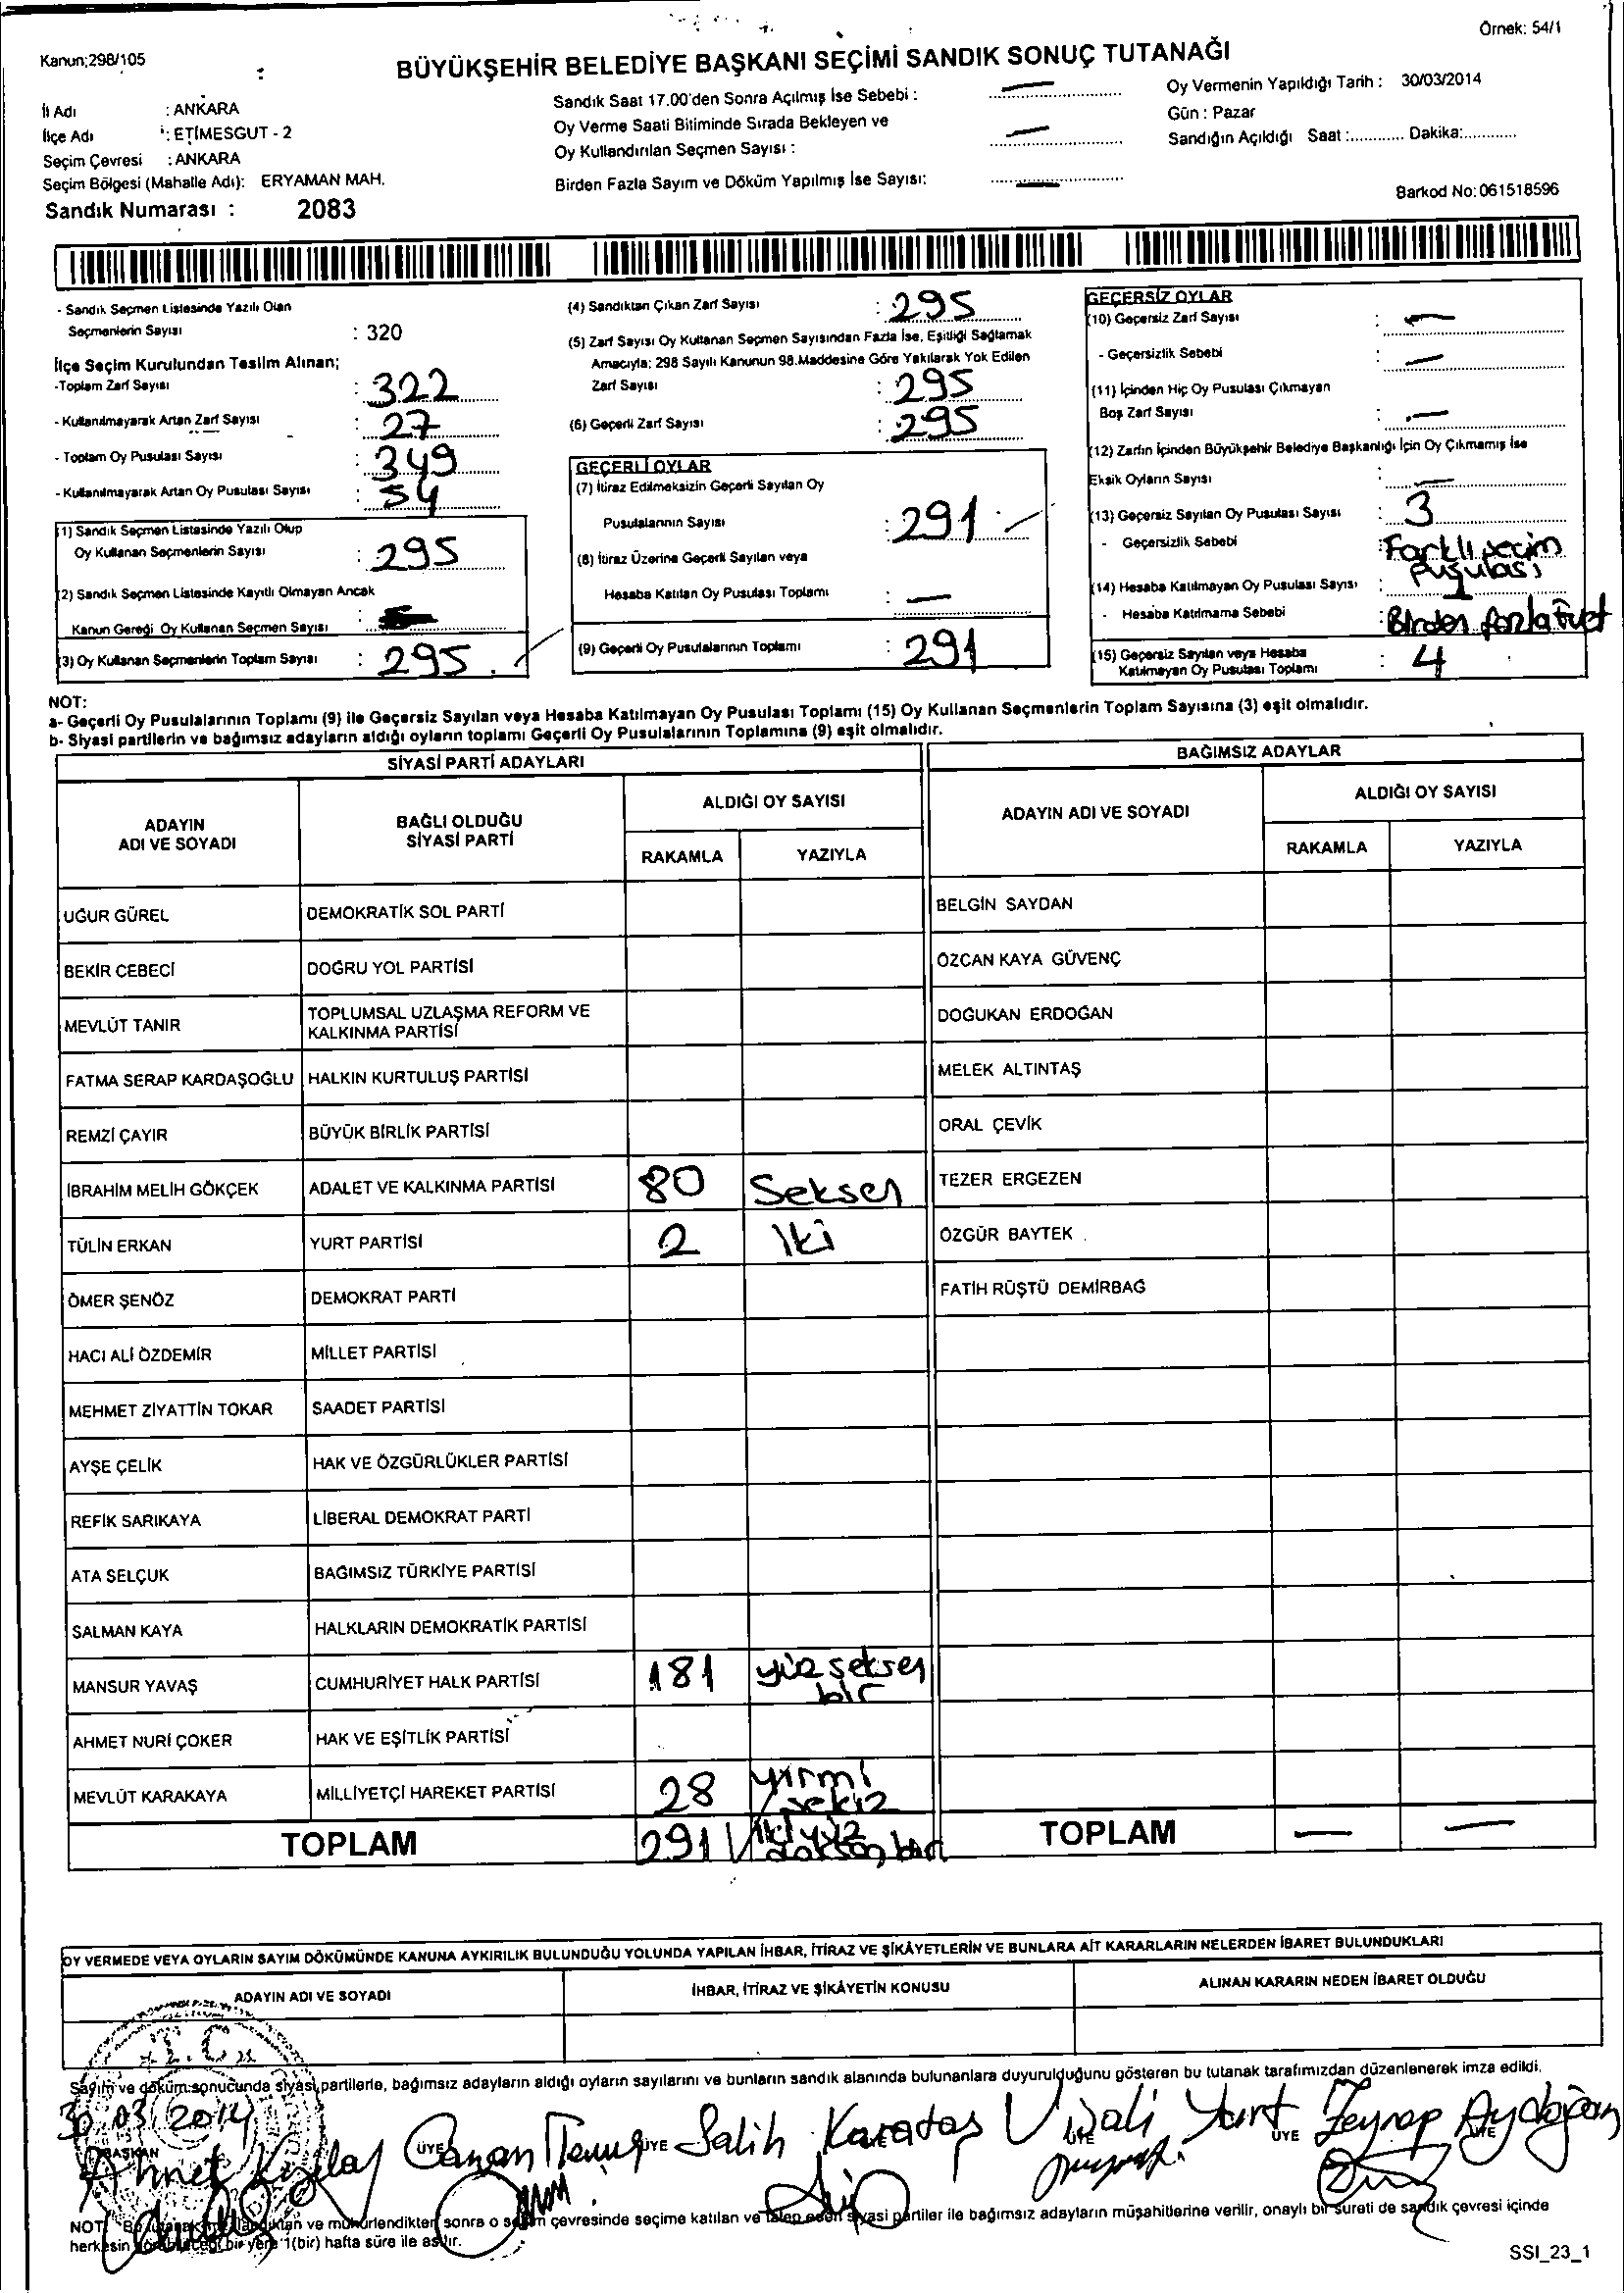 Örnek: 54/1
Kanun;298/105
BÜYÜKŞEHİR BELEDİYE BAŞKANI SEÇİMİ SANDIK SONUÇ TUTANAĞI
İl Adı : ANKARA
İlçe Adı : ETİMESGUT - 2
Seçim Çevresi : ANKARA
Seçim Bölgesi (Mahalle Adı): ERYAMAN MAH.
Sandık Numarası : 2083
Sandık Saat 17.00'den Sonra Açılmış İse Sebebi : —
Oy Verme Saati Bitiminde Sırada Bekleyen ve
Oy Kullandırılan Seçmen Sayısı : —
Birden Fazla Sayım ve Döküm Yapılmış İse Sayısı: —
Oy Vermenin Yapıldığı Tarih : 30/03/2014
Gün : Pazar
Sandığın Açıldığı Saat :............ Dakika:............
Barkod No: 061518596
- Sandık Seçmen Listesinde Yazılı Olan
Seçmenlerin Sayısı : 320
İlçe Seçim Kurulundan Teslim Alınan;
-Toplam Zarf Sayısı : 322
- Kullanılmayarak Artan Zarf Sayısı : 27
- Toplam Oy Pusulası Sayısı : 349
- Kullanılmayarak Artan Oy Pusulası Sayısı : 54
(1) Sandık Seçmen Listesinde Yazılı Olup
Oy Kullanan Seçmenlerin Sayısı : 295
(2) Sandık Seçmen Listesinde Kayıtlı Olmayan Ancak
Kanun Gereği Oy Kullanan Seçmen Sayısı :
(3) Oy Kullanan Seçmenlerin Toplam Sayısı : 295
(4) Sandıktan Çıkan Zarf Sayısı : 295
(5) Zarf Sayısı Oy Kullanan Seçmen Sayısından Fazla İse, Eşitliği Sağlamak
Amacıyla; 298 Sayılı Kanunun 98.Maddesine Göre Yakılarak Yok Edilen
Zarf Sayısı : 295
(6) Geçerli Zarf Sayısı : 295
GEÇERLİ OYLAR
(7) İtiraz Edilmeksizin Geçerli Sayılan Oy
Pusulalarının Sayısı : 291
(8) İtiraz Üzerine Geçerli Sayılan veya
Hesaba Katılan Oy Pusulası Toplamı : —
(9) Geçerli Oy Pusulalarının Toplamı : 291
GEÇERSİZ OYLAR
(10) Geçersiz Zarf Sayısı : —
- Geçersizlik Sebebi : —
(11) İçinden Hiç Oy Pusulası Çıkmayan
Boş Zarf Sayısı : —
(12) Zarfın İçinden Büyükşehir Belediye Başkanlığı İçin Oy Çıkmamış İse
Eksik Oyların Sayısı : —
(13) Geçersiz Sayılan Oy Pusulası Sayısı : 3
- Geçersizlik Sebebi : Farklı seçim
pusulası
(14) Hesaba Katılmayan Oy Pusulası Sayısı : 1
- Hesaba Katılmama Sebebi : Birden fazla
(15) Geçersiz Sayılan veya Hesaba
Katılmayan Oy Pusulası Toplamı : 4
NOT:
a- Geçerli Oy Pusulalarının Toplamı (9) ile Geçersiz Sayılan veya Hesaba Katılmayan Oy Pusulası Toplamı (15) Oy Kullanan Seçmenlerin Toplam Sayısına (3) eşit olmalıdır.
b- Siyasi partilerin ve bağımsız adayların aldığı oyların toplamı Geçerli Oy Pusulalarının Toplamına (9) eşit olmalıdır.
SİYASİ PARTİ ADAYLARI
ADAYIN
ADI VE SOYADI
BAĞLI OLDUĞU
SİYASİ PARTİ
ALDIĞI OY SAYISI
RAKAMLA YAZIYLA
UĞUR GÜREL DEMOKRATİK SOL PARTİ
BEKİR CEBECİ DOĞRU YOL PARTİSİ
MEVLÜT TANIR TOPLUMSAL UZLAŞMA REFORM VE
KALKINMA PARTİSİ
FATMA SERAP KARDAŞOĞLU HALKIN KURTULUŞ PARTİSİ
REMZİ ÇAYIR BÜYÜK BİRLİK PARTİSİ
İBRAHİM MELİH GÖKÇEK ADALET VE KALKINMA PARTİSİ 80 Seksen
TÜLİN ERKAN YURT PARTİSİ 2 İki
ÖMER ŞENÖZ DEMOKRAT PARTİ
HACI ALİ ÖZDEMİR MİLLET PARTİSİ
MEHMET ZİYATTİN TOKAR SAADET PARTİSİ
AYŞE ÇELİK HAK VE ÖZGÜRLÜKLER PARTİSİ
REFİK SARIKAYA LİBERAL DEMOKRAT PARTİ
ATA SELÇUK BAĞIMSIZ TÜRKİYE PARTİSİ
SALMAN KAYA HALKLARIN DEMOKRATİK PARTİSİ
MANSUR YAVAŞ CUMHURİYET HALK PARTİSİ 181 yüz seksen
bir
AHMET NURİ ÇOKER HAK VE EŞİTLİK PARTİSİ
MEVLÜT KARAKAYA MİLLİYETÇİ HAREKET PARTİSİ 28 yirmi
sekiz
TOPLAM 291 iki yüz
doksan bir
BAĞIMSIZ ADAYLAR
ADAYIN ADI VE SOYADI
ALDIĞI OY SAYISI
RAKAMLA YAZIYLA
BELGİN SAYDAN
ÖZCAN KAYA GÜVENÇ
DOĞUKAN ERDOĞAN
MELEK ALTINTAŞ
ORAL ÇEVİK
TEZER ERGEZEN
ÖZGÜR BAYTEK
FATİH RÜŞTÜ DEMİRBAĞ
TOPLAM — —
OY VERMEDE VEYA OYLARIN SAYIM DÖKÜMÜNDE KANUNA AYKIRILIK BULUNDUĞU YOLUNDA YAPILAN İHBAR, İTİRAZ VE ŞİKÂYETLERİN VE BUNLARA AİT KARARLARIN NELERDEN İBARET BULUNDUKLARI
ADAYIN ADI VE SOYADI
İHBAR, İTİRAZ VE ŞİKÂYETİN KONUSU
ALINAN KARARIN NEDEN İBARET OLDUĞU
T.C.
Sayım ve döküm sonucunda siyasi partilerle, bağımsız adayların aldığı oyların sayılarını ve bunların sandık alanında bulunanlara duyurulduğunu gösteren bu tutanak tarafımızdan düzenlenerek imza edildi.
30.03.2014
BAŞKAN ÜYE ÜYE ÜYE ÜYE ÜYE
Ahmet Canan Salih Karataş Yurt Zeynep Aydoğan
NOT: Bu tutanak ve mühürlendikten sonra o seçim çevresinde seçime katılan ve talep eden siyasi partiler ile bağımsız adayların müşahitlerine verilir, onaylı bir sureti de sandık çevresi içinde
herkesin görebileceği bir yere 1(bir) hafta süre ile asılır.
SSI_23_1